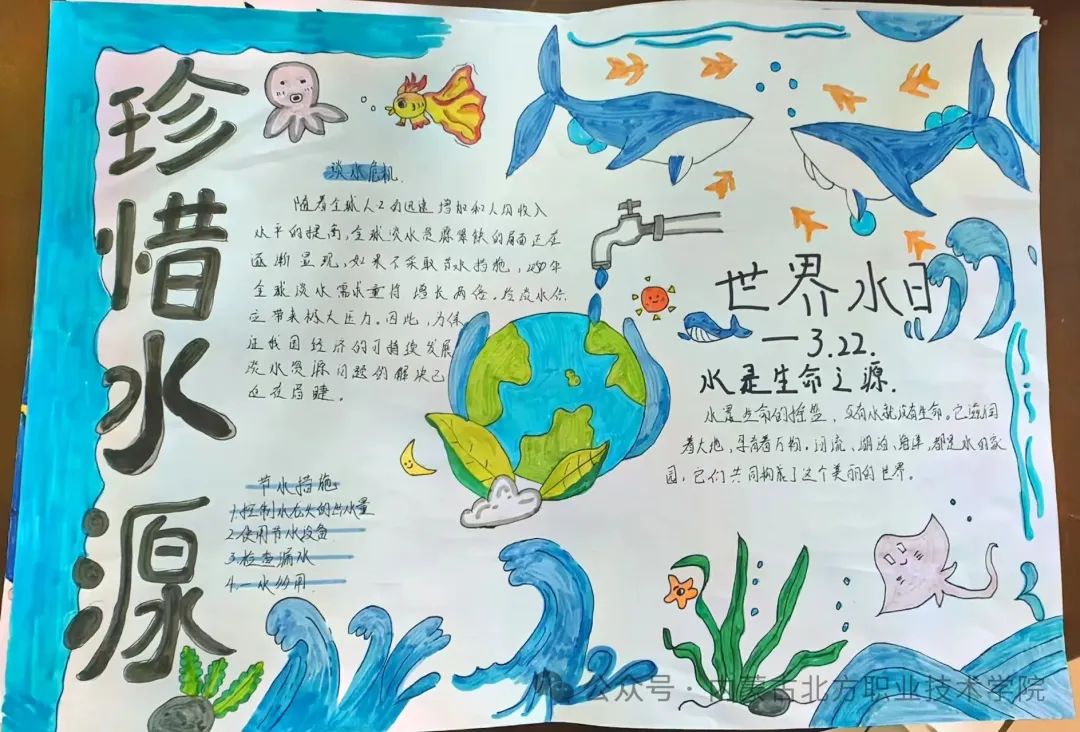 珍惜水源
淡水危机
随着全球人口的迅速增加和人同收入
水平的提高,全球淡水资源紧缺的局面正在
逐渐显现,如果不采取节水措施,2050年
全球淡水需求量将增长两倍。给淡水供
应带来极大压力。因此,为保
证我国经济的可持续发展
淡水资源问题的解决已
迫在眉睫。
节水措施
1.控制水龙头的出水量
2.使用节水设备
3.检查漏水
4.一水多用
世界水日
—3.22.
水是生命之源.
水是生命的摇篮、没有水就没有生命。它滋润
着大地,孕育着万物。河流、湖泊、海洋,都是水的家
园,它们共同构成了这个美丽的世界。
公众号·内蒙古北方职业技术学院